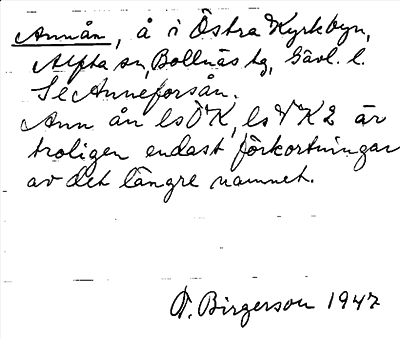 Annån, å i Östra Kyrkbyn,
Alfta sn, Bollnäs tg, Gävl. l.
Se Anneforsån.
Ann ån ls Ö K, ls V K 2 är
troligen endast förkortningar
av det längre namnet.
Birgerson 1947